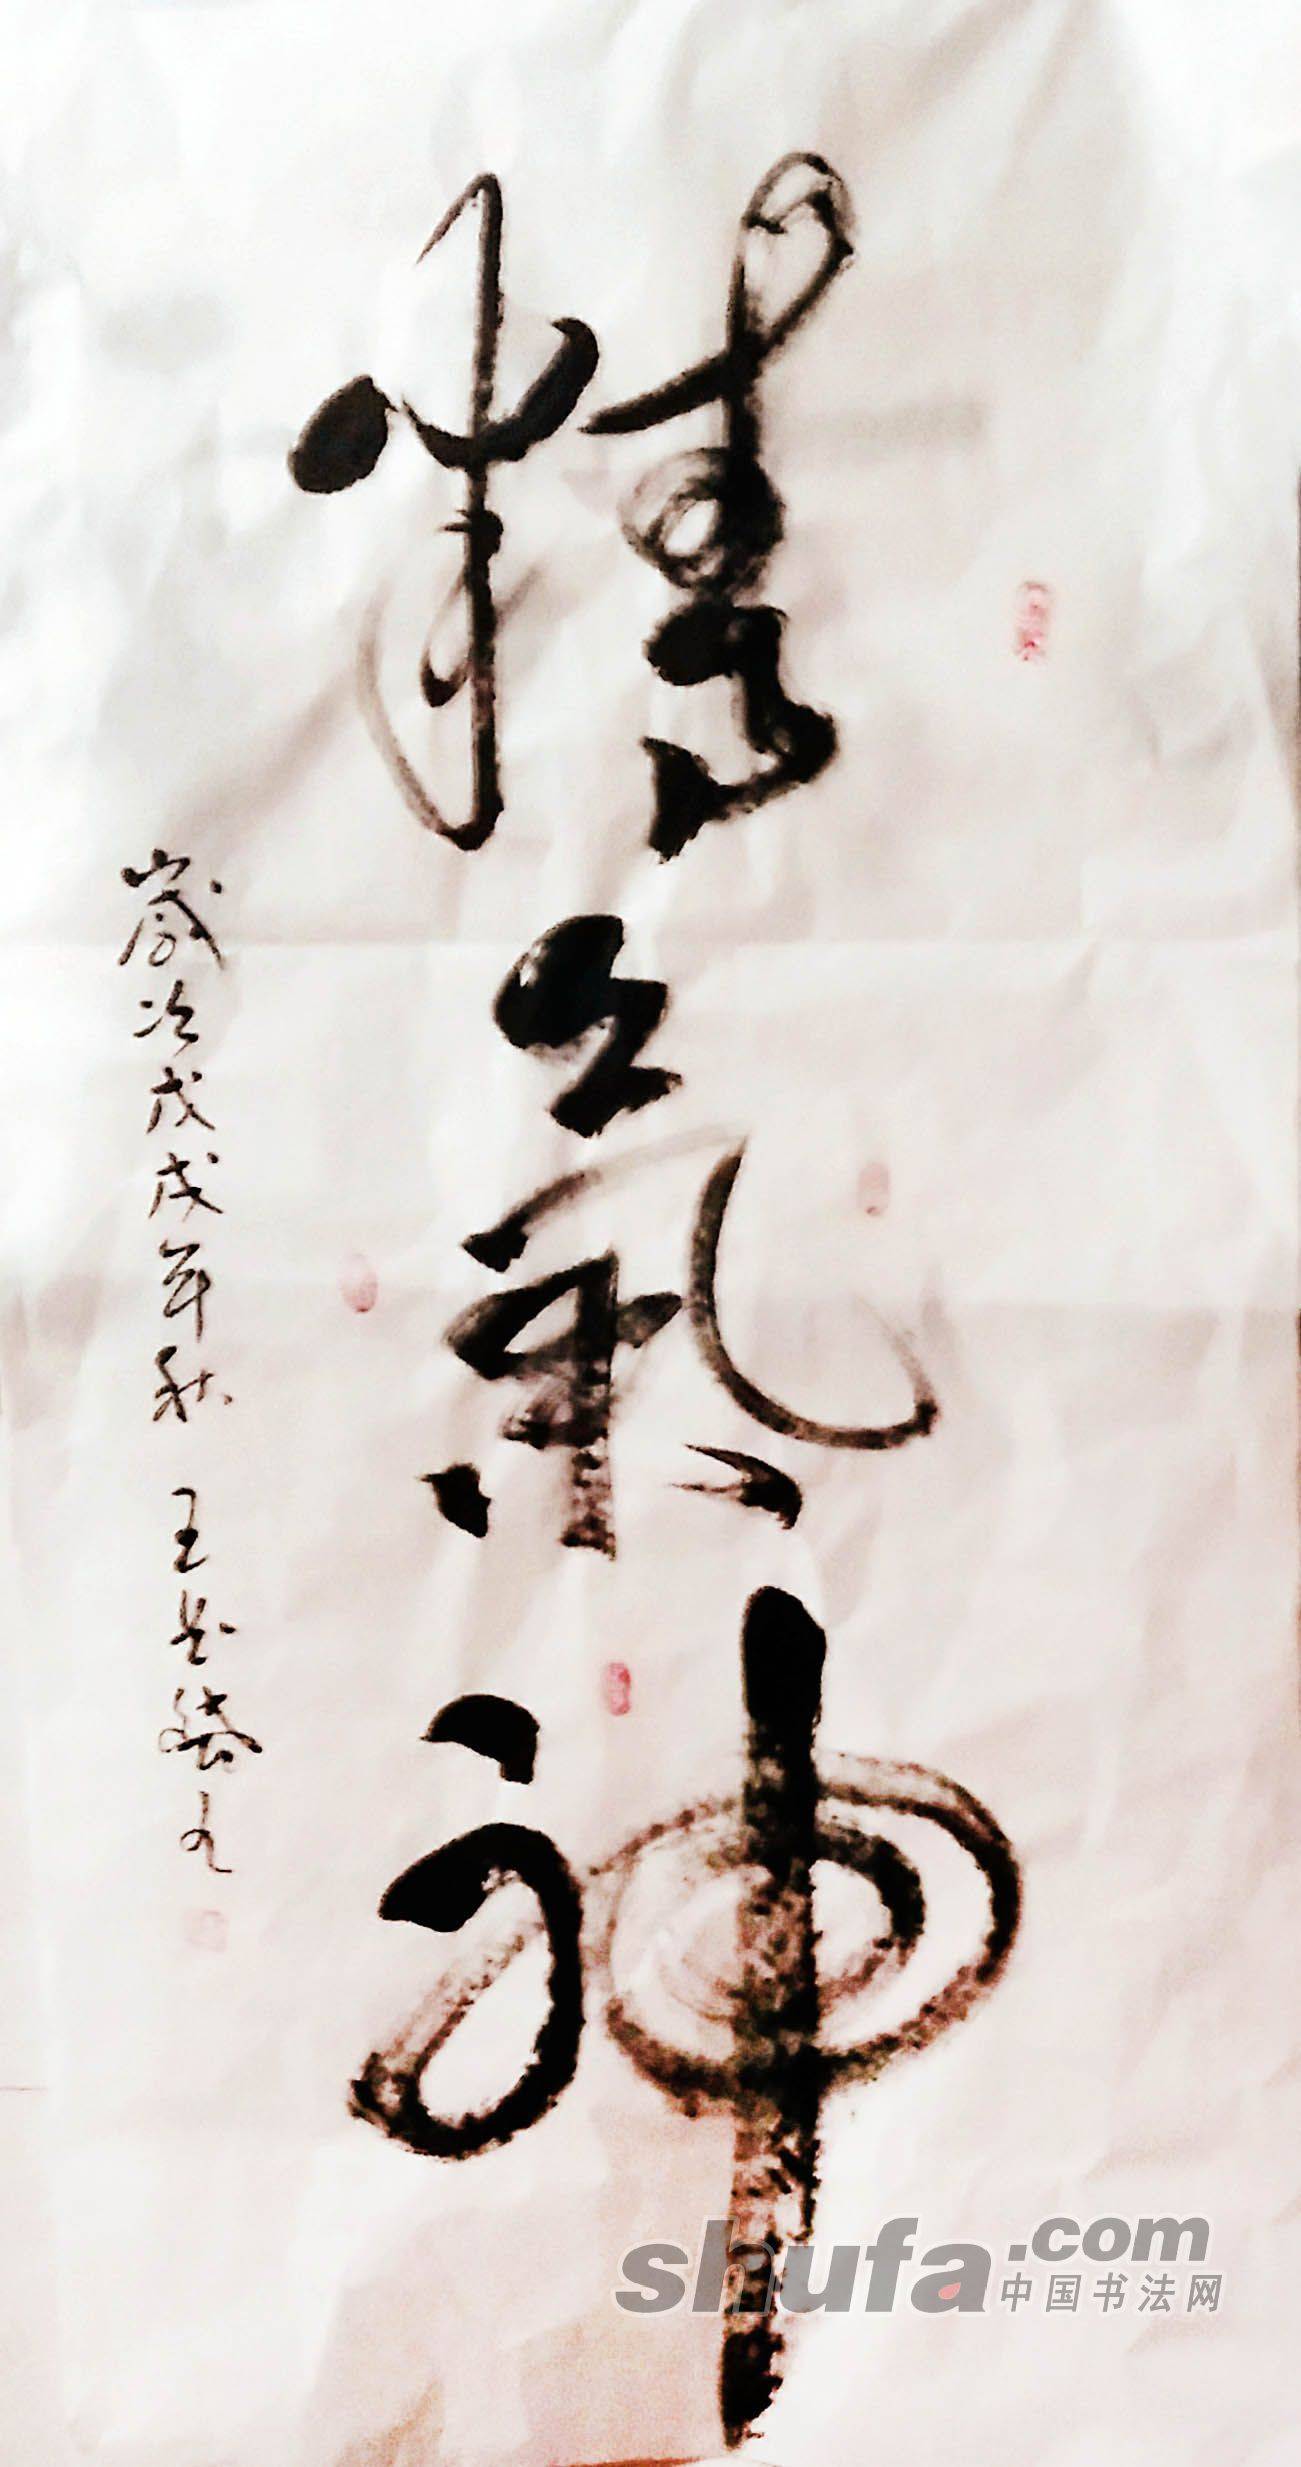 精氣神
歲次戊戌年秋 王
shufa.com
中国书法网